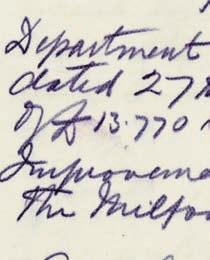 Department
dated 27
of £13.770
Improveme
the Milfo